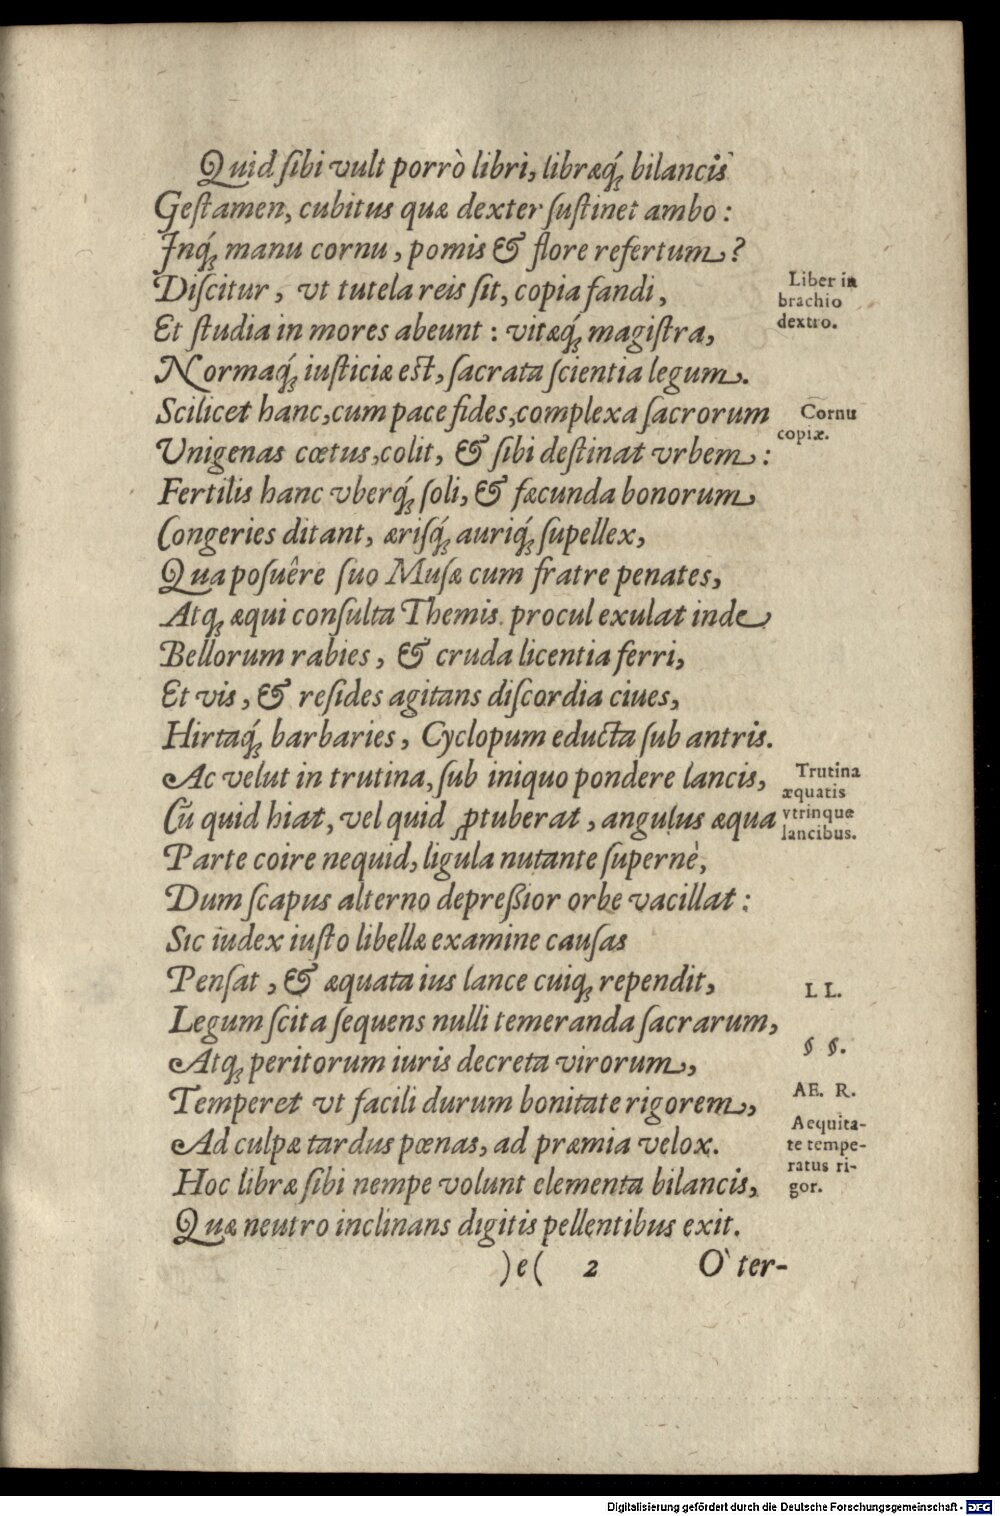 Quid ſibi vult porrò libri, libræq́; bilancis
Geſtamen, cubitus quæ dexter ſuſtinet ambo:
Inq́; manu cornu, pomis & flore refertum?
Diſcitur, vt tutela reis ſit, copia fandi,
Liber in
brachio
dextro.
Et ſtudia in mores abeunt: vitæq́; magiſtra,
Normaq́; iuſticiæ eſt, ſacrata ſcientia legum.
Scilicet hanc, cum pace fides, complexa ſacrorum
Cornu
copiæ.
Unigenas cœtus, colit, & ſibi deſtinat vrbem:
Fertilis hanc vberq́; ſoli, & fæcunda bonorum
Congeries ditant, æriſq́; auriq́; ſupellex,
Qua poſuêre ſuo Muſæ cum fratre penates,
Atq; æqui conſulta Themis. procul exulat inde
Bellorum rabies, & cruda licentia ferri,
Et vis, & reſides agitans diſcordia ciues,
Hirtaq́; barbaries, Cyclopum educta ſub antris.
Ac velut in trutina, ſub iniquo pondere lancis,
Trutina
æquatis
vtrinque
lancibus.
Cū quid hiat, vel quid ꝓtuberat, angulus æqua
Parte coire nequid, ligula nutante ſupernè,
Dum ſcapus alterno depreßior orbe vacillat:
Sic iudex iuſto libellæ examine cauſas
Penſat, & æquata ius lance cuiq; rependit,
L L.
Legum ſcita ſequens nulli temeranda ſacrarum,
§ §.
Atq; peritorum iuris decreta virorum,
Temperet vt facili durum bonitate rigorem,
AE. R.
Aequita-
te tempe-
ratus ri-
gor.
Ad culpæ tardus pœnas, ad præmia velox.
Hoc libræ ſibi nempe volunt elementa bilancis,
Quæ neutro inclinans digitis pellentibus exit.
)e( 2 O` ter-
Digitalisierung gefördert durch die Deutsche Forschungsgemeinschaft - DFG